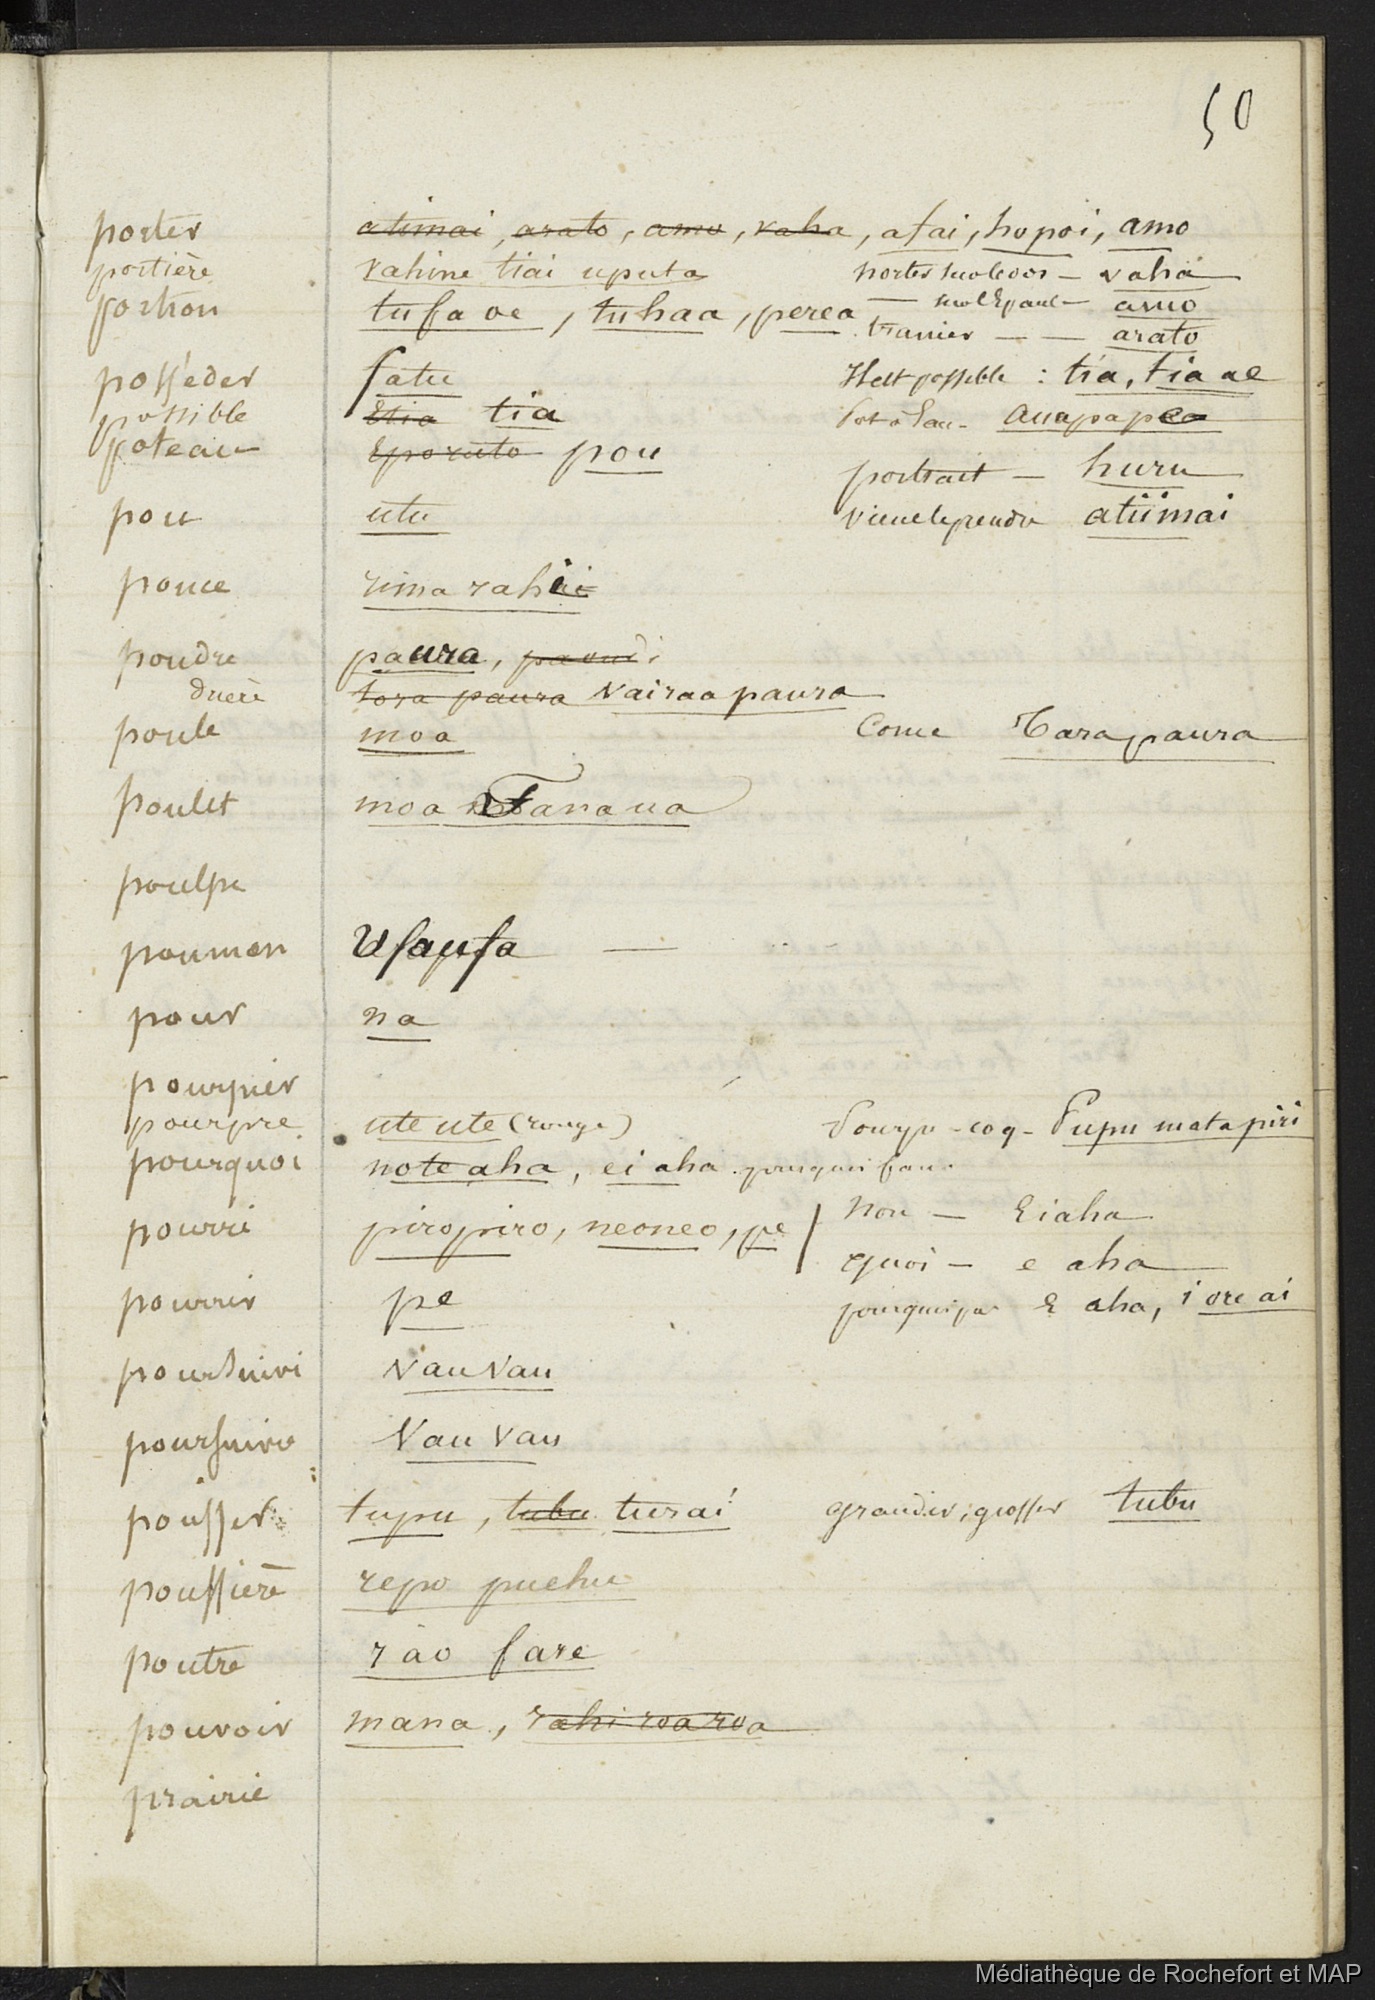 50
porter atiimai, arato, amo, vaha, afai, hopoi, amo
portière vahine tiai uputa porter sur le dos - vaha
portion tufaoe, tuhaa, perea — sur l'Epaule - amo
trainer — — arato
posséder fatu Il est possible : tia, tia ae
possible Etia tia Pot à Eau - auapapea
poteau pou
portrait - huru
pou utu
Vieneleprendre atiimai
pouce rima rahi
poudre paura,
tora paura Vairaa paura
poule moa Corne Tara paura
poulet moa Fanaua
poulpe
poumon Ufaufa —
pour na
pourpier
pourpre uteute (rouge) Pourpr - coq - Pupu matapiri
pourquoi noteaha, ei aha
pourri piropiro, neoneo, pe non - Eiaha
quoi - e aha
pourrir pe pourquoi pas E aha, i ore ai
poursuivi vauvau
poursuivre Vauvau
pousser tupu, tubu turai grandir, grossir tubu
poussière repo puehu
poutre rao fare
pouvoir mana, rahi roaroa
prairie
Médiathèque de Rochefort et MAP